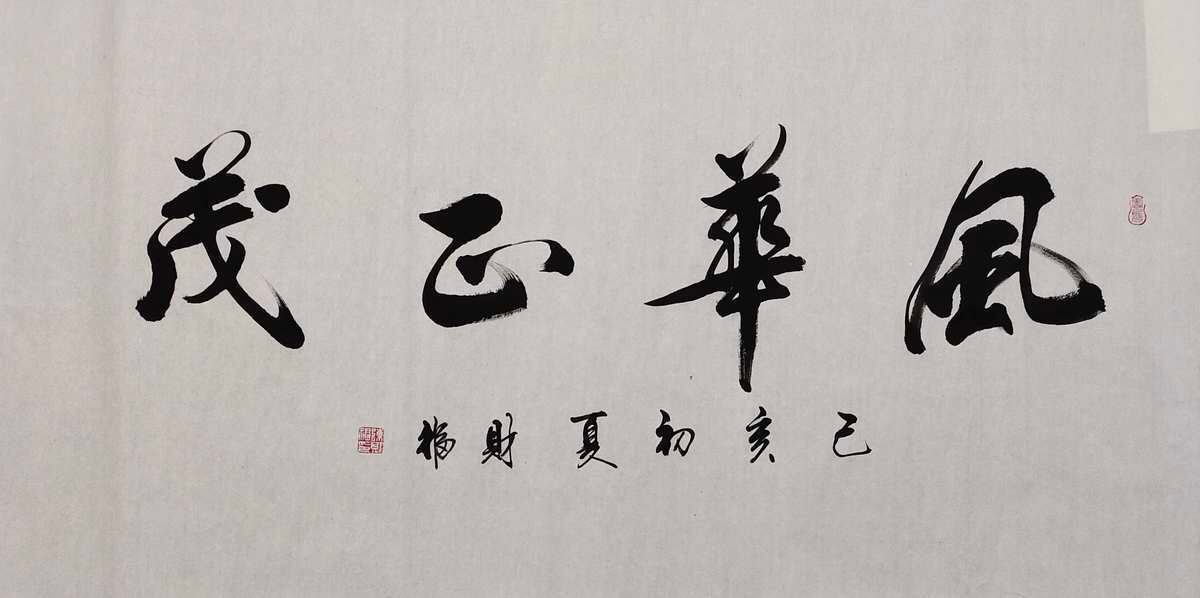 風華正茂
己亥初夏財福